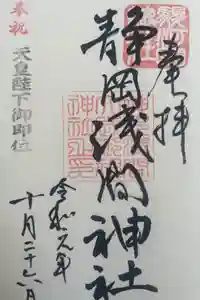 奉拝
静岡浅間神社
令和元年
十月二十六日
奉祝 天皇陛下御即位